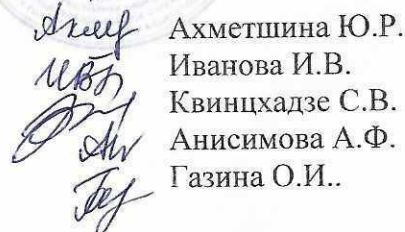 Ахметшина Ю.Р.
Иванова И.В.
Квинцхадзе С.В.
Анисимова А.Ф.
Газина О.И..